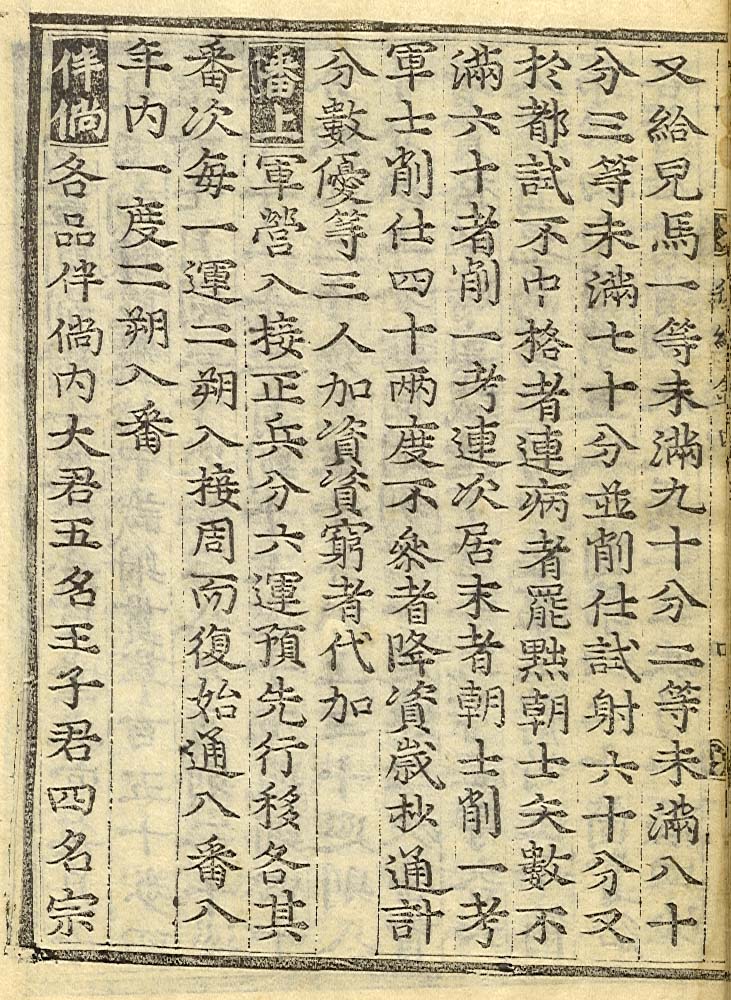 又給兒馬一等未滿九十分二等未滿八十
分三等未滿七十分並削仕試射六十分又
於都試不中格者連病者罷黜朝士矢數不
滿六十者削一考連次居末者朝士削一考
軍士削仕四十兩度不叅者降資歲抄通計
分數優等三人加資資窮者代加
番上軍營入接正兵分六運預先行移各其
番次每一運二朔入接周而復始通八番八
年內一度二朔入番
伴倘各品伴倘內大君五名王子君四名宗